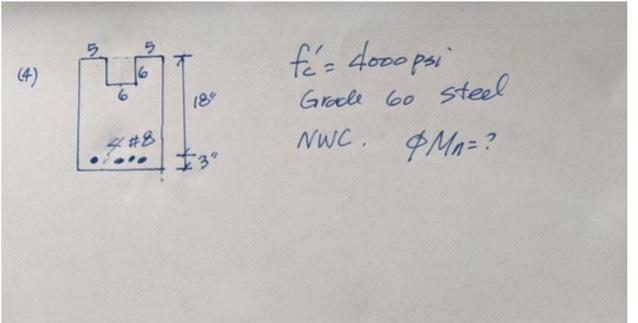 (4)
5 5
6
6
18"
4 #8
3"
fc' = 4000 psi
Grade 60 steel
NWC. φMn = ?